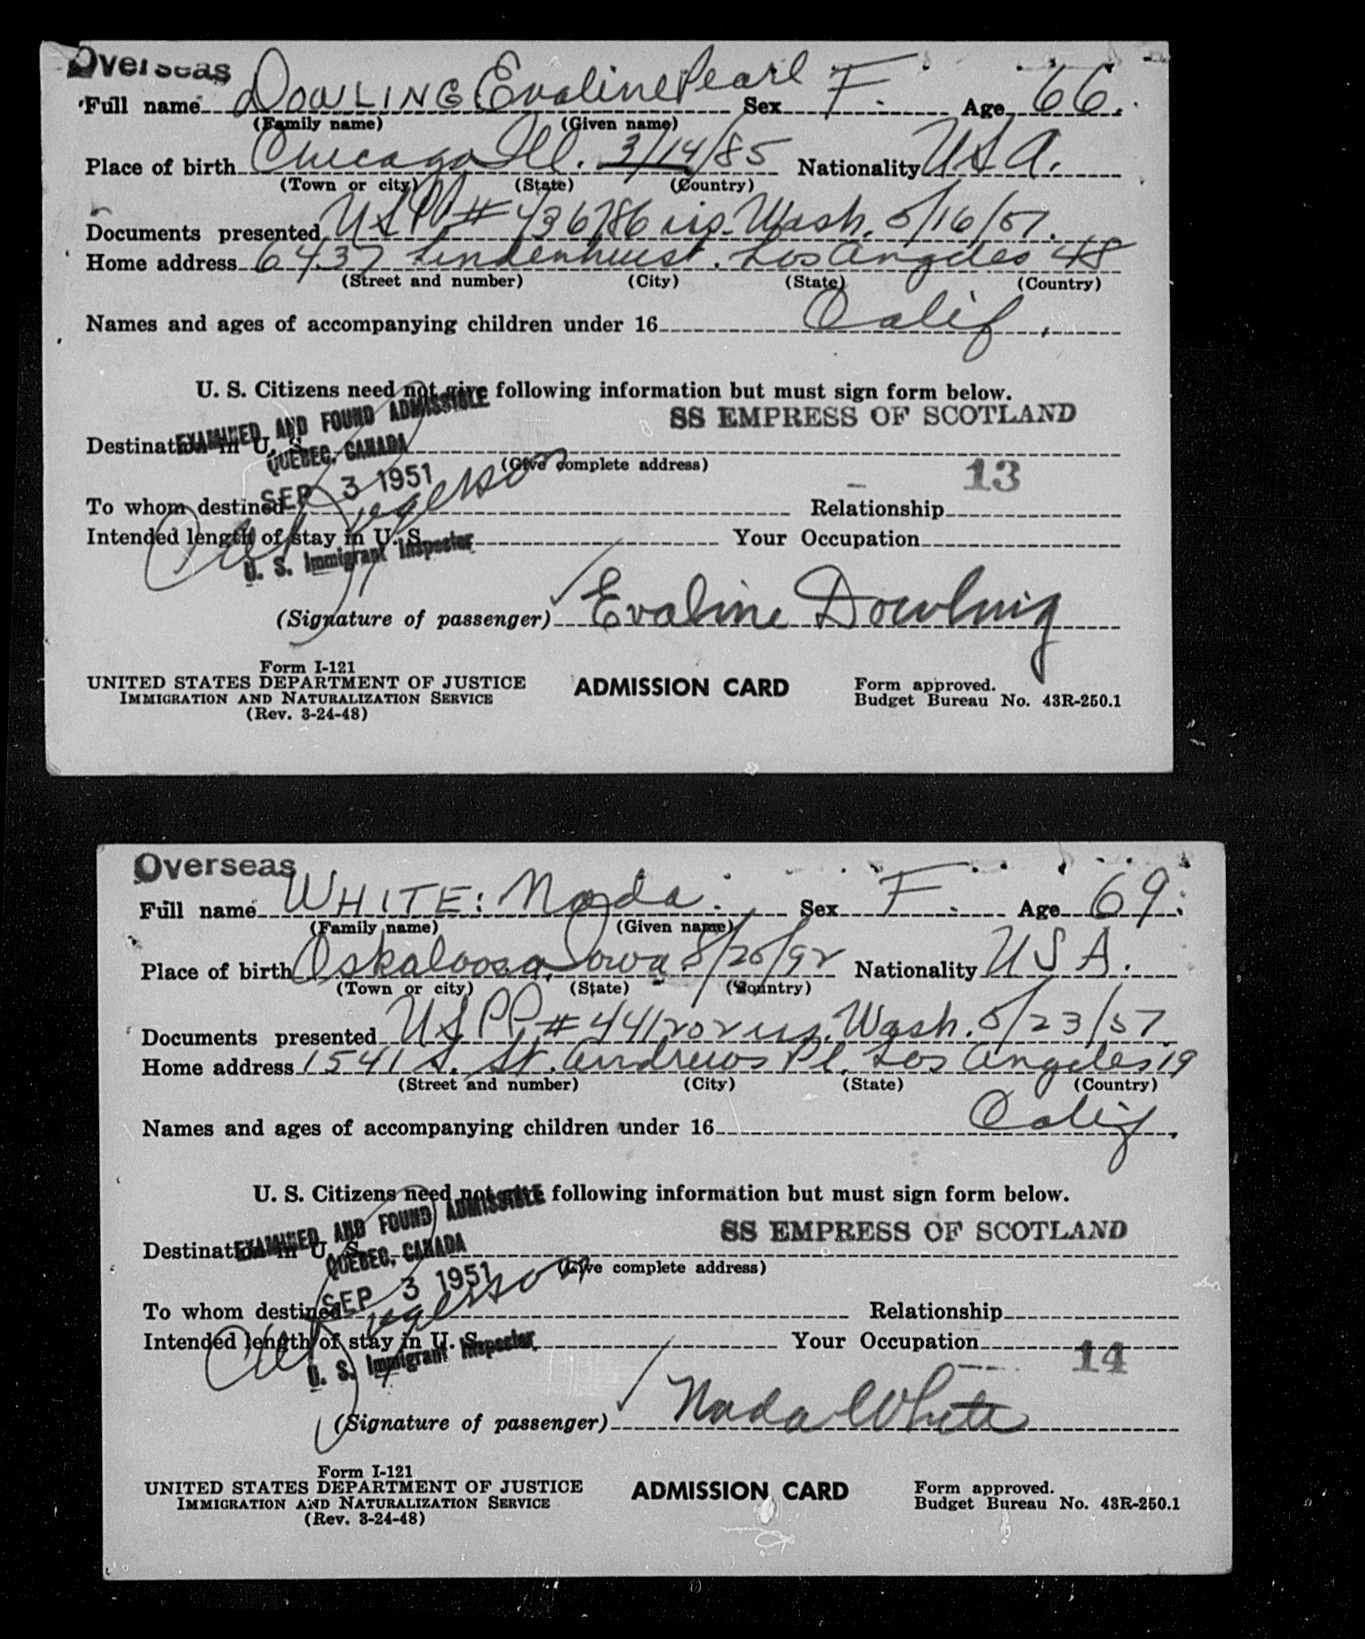 Overseas
Full name DOWLING Evaline Pearl Sex F. Age 66.
(Family name) (Given name)
Place of birth Chicago Ill. 3/14/85 Nationality USA.
(Town or city) (State) (Country)
Documents presented USPP# 436786 iss. Wash. 5/16/51.
Home address 6437 Lindenhurst. Los Angeles 48
(Street and number) (City) (State) (Country)
Names and ages of accompanying children under 16 Calif.
U. S. Citizens need not give following information but must sign form below.
EXAMINED AND FOUND ADMISSIBLE
SS EMPRESS OF SCOTLAND
Destination in U. S.
QUEBEC, CANADA
(Give complete address)
13
SEP 3 1951
To whom destined Relationship
Intended length of stay in U. S. Your Occupation
U. S. Immigrant Inspector
(Signature of passenger) Evaline Dowling
Form I-121
UNITED STATES DEPARTMENT OF JUSTICE ADMISSION CARD Form approved.
IMMIGRATION AND NATURALIZATION SERVICE Budget Bureau No. 43R-250.1
(Rev. 3-24-48)
Overseas
Full name WHITE: Nada. Sex F. Age 69.
(Family name) (Given name)
Place of birth Oskaloosa, Iowa 8/20/92 Nationality USA.
(Town or city) (State) (Country)
Documents presented USPP. # 441202 iss. Wash. 5/23/51
Home address 1541 S. St. Andrews Pl. Los Angeles 19
(Street and number) (City) (State) (Country)
Names and ages of accompanying children under 16 Calif.
U. S. Citizens need not give following information but must sign form below.
EXAMINED AND FOUND ADMISSIBLE
SS EMPRESS OF SCOTLAND
Destination in U. S.
QUEBEC, CANADA
(Give complete address)
SEP 3 1951
To whom destined Relationship
Intended length of stay in U. S. Your Occupation
14
U. S. Immigrant Inspector
(Signature of passenger) Nada White
Form I-121
UNITED STATES DEPARTMENT OF JUSTICE ADMISSION CARD Form approved.
IMMIGRATION AND NATURALIZATION SERVICE Budget Bureau No. 43R-250.1
(Rev. 3-24-48)